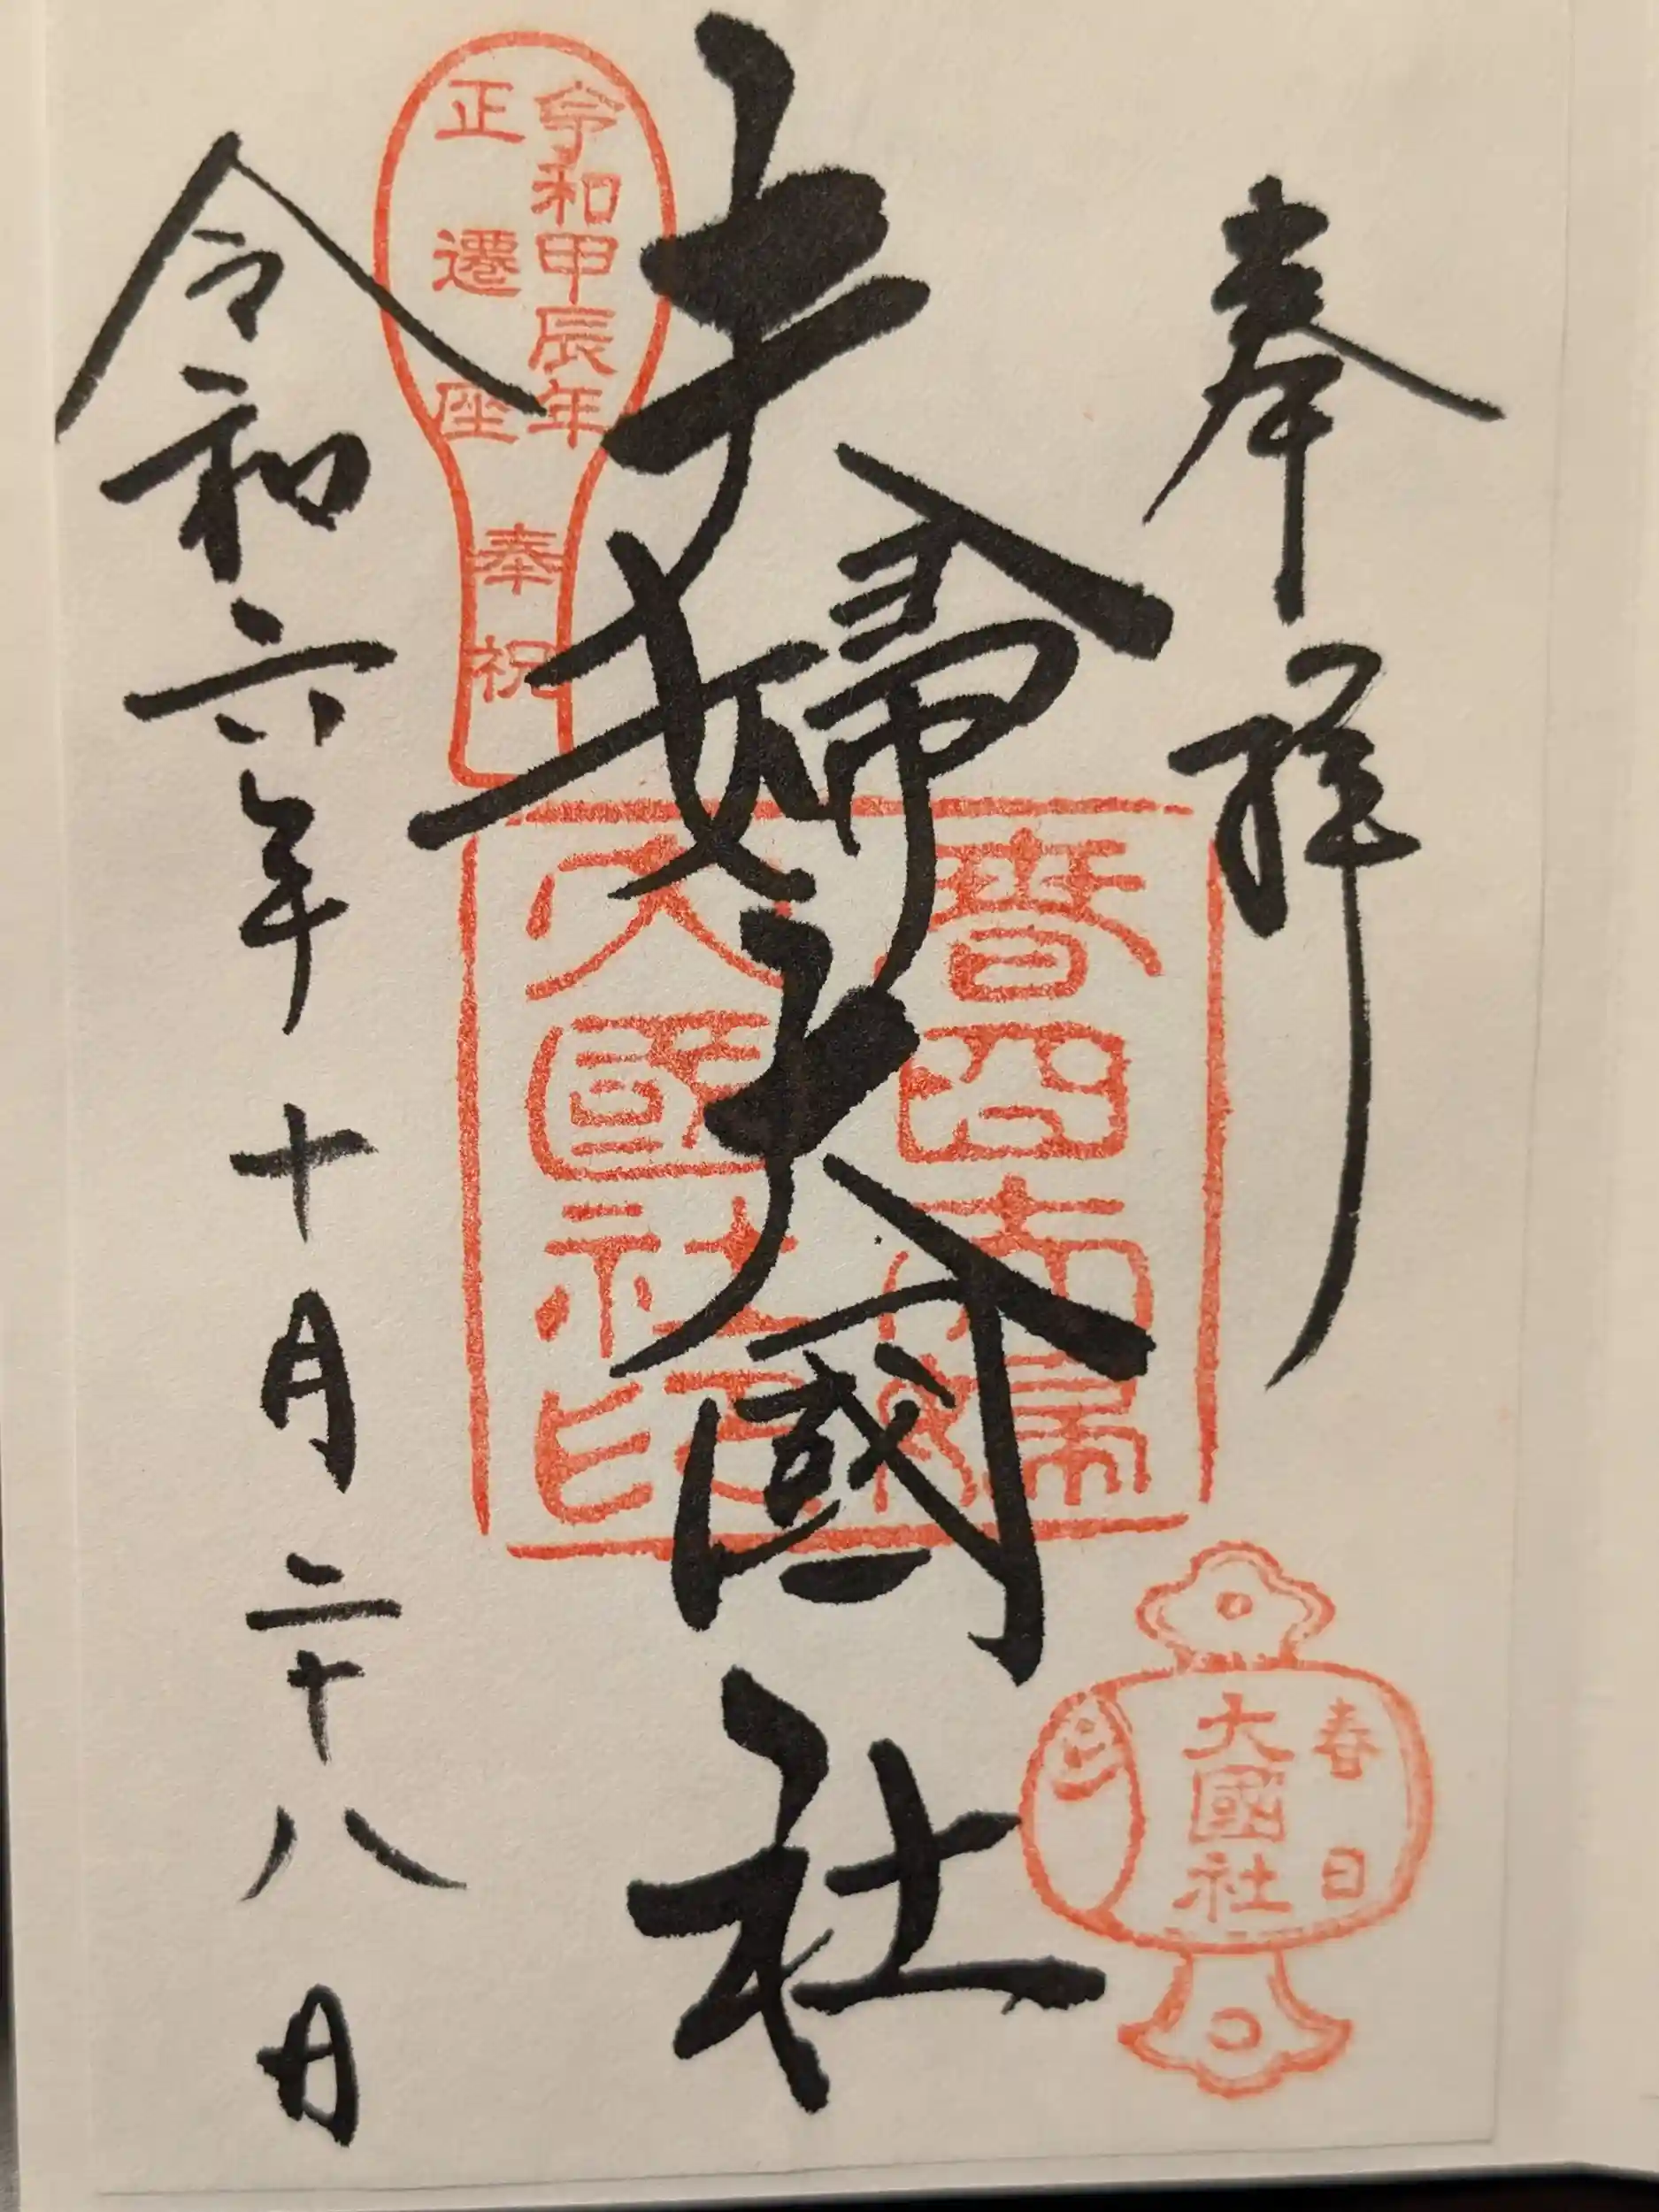 奉拜
春日
大國社
夫婦大國社
春日大社
夫婦
大國社印
令和甲辰年
正遷座
奉祝
令和六年十月二十八日